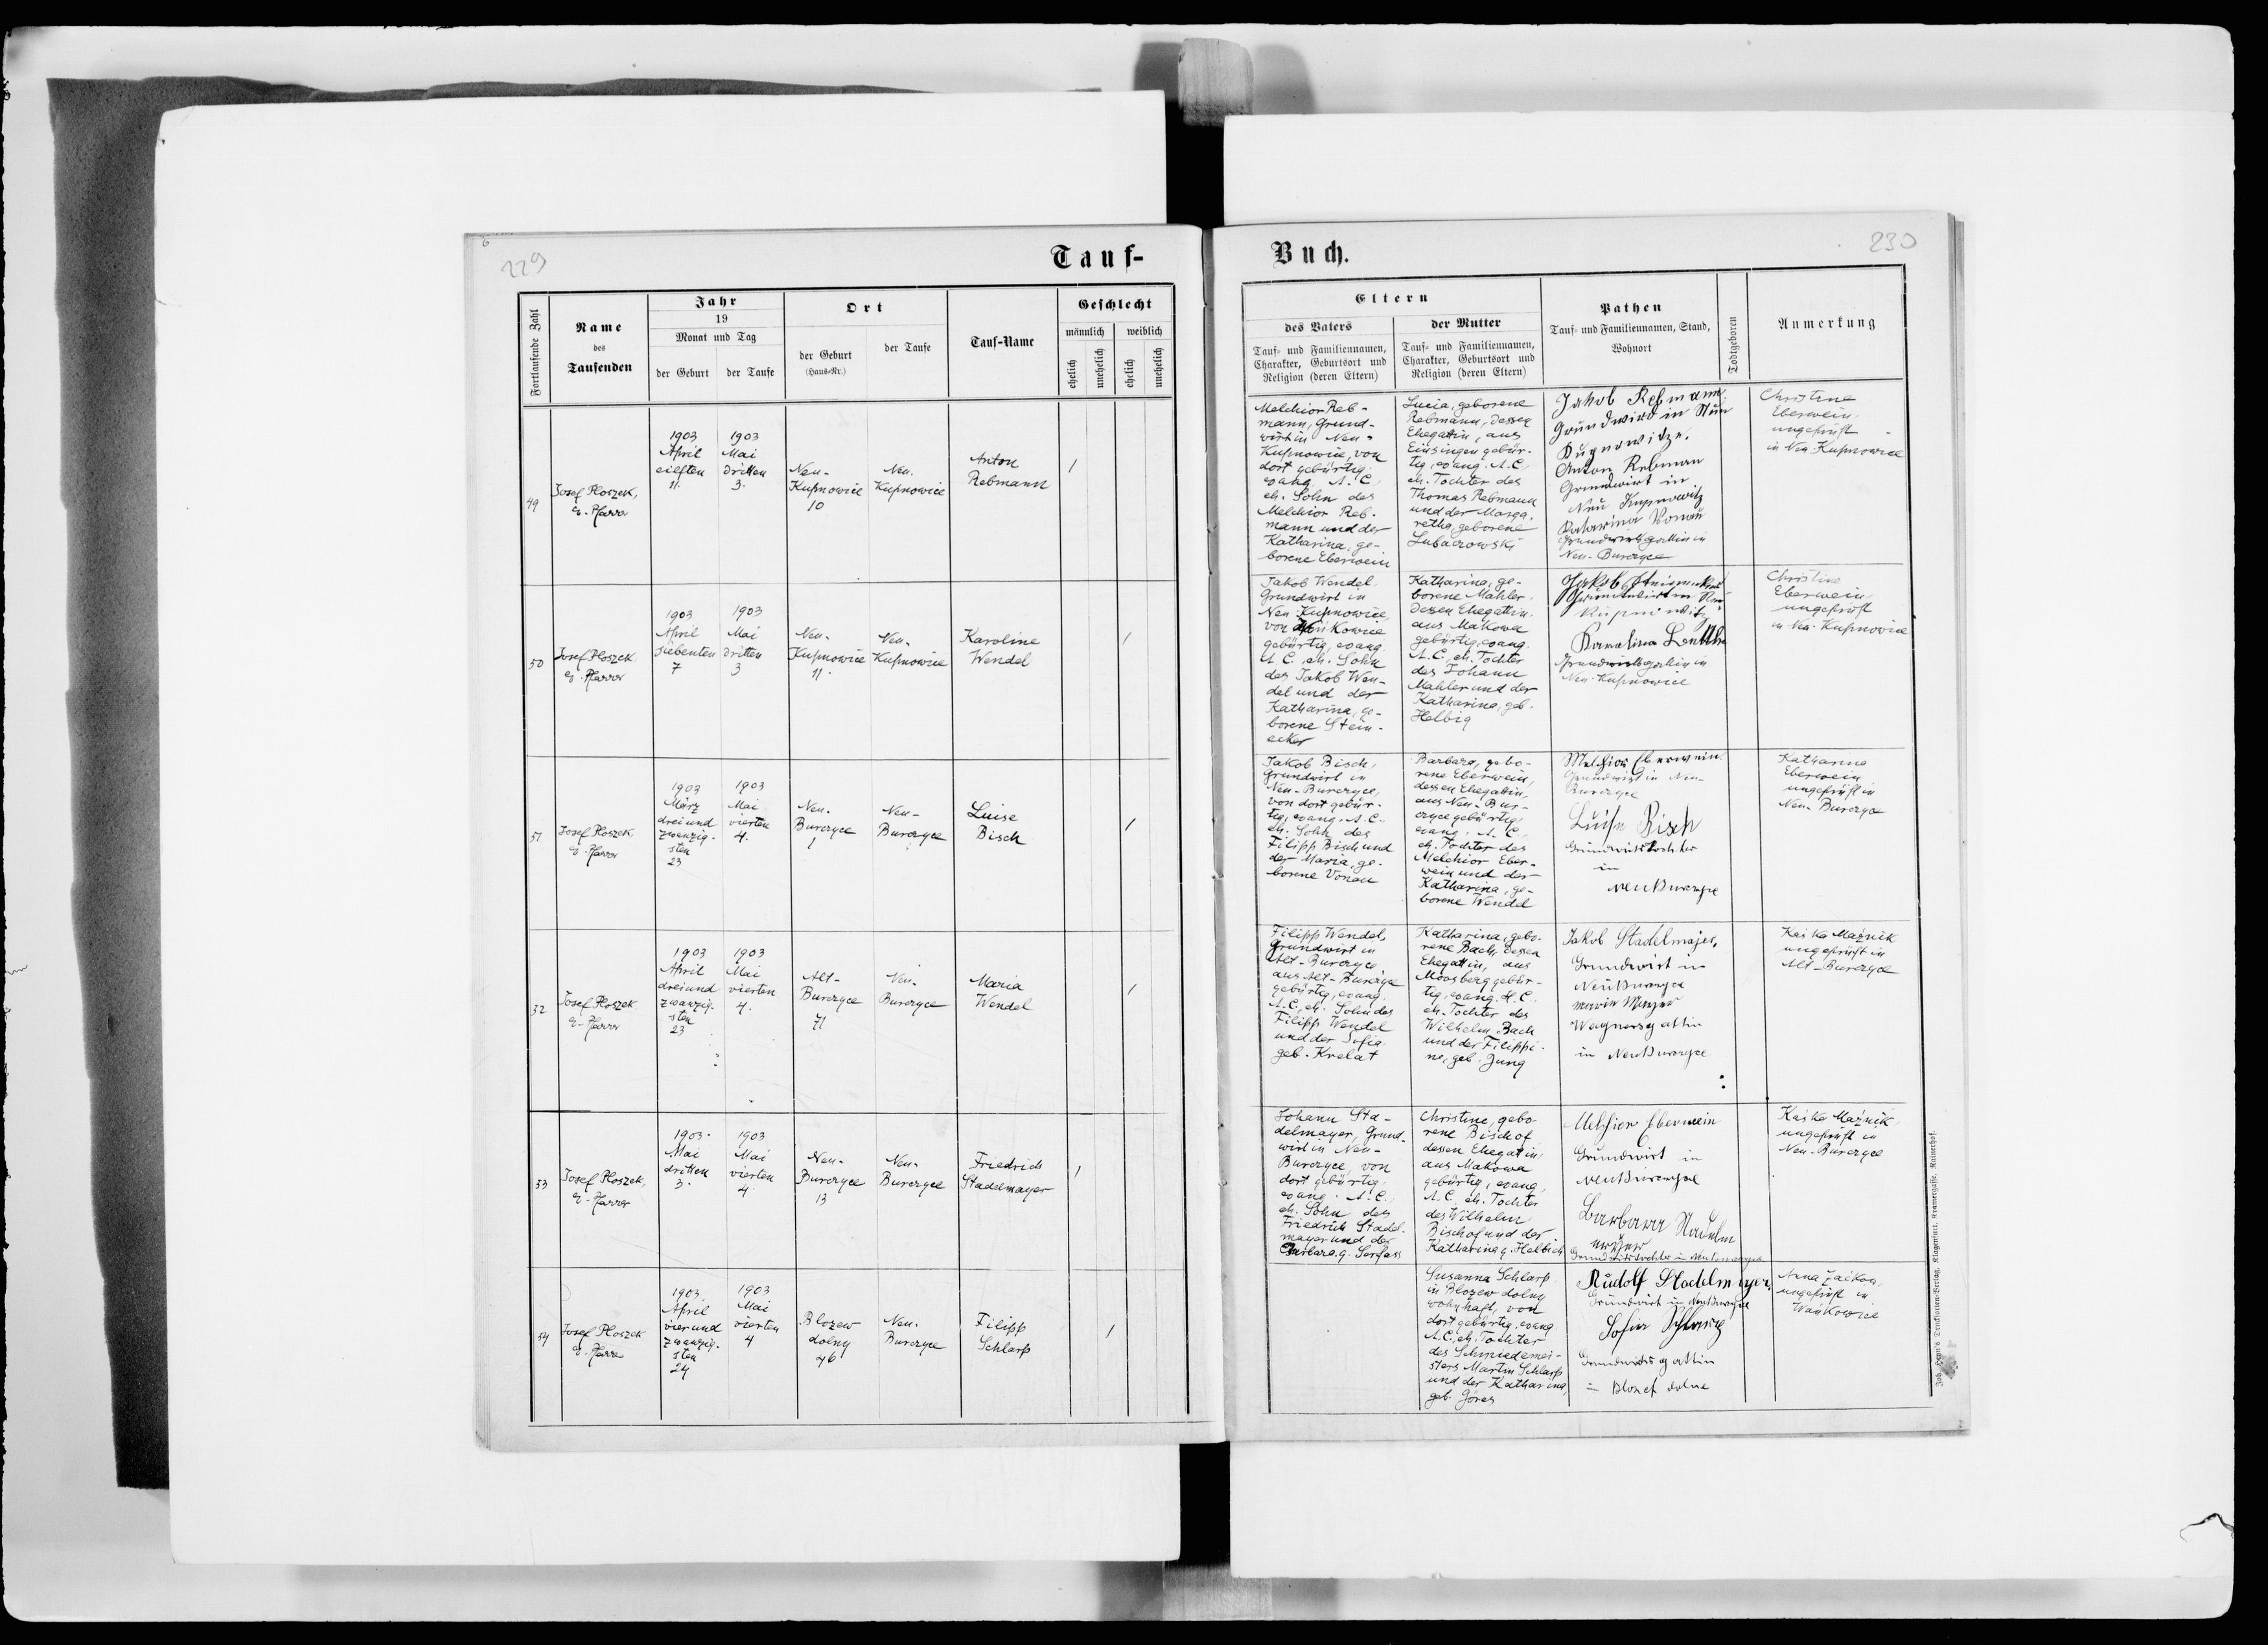 229
Tauf-
Fortlaufende Zahl
Name
des
Taufenden
Jahr
19
Monat und Tag
der Geburt
der Taufe
Ort
der Geburt
(Haus-Nr.)
der Taufe
Tauf-Name
Geschlecht
männlich
weiblich
ehelich
unehelich
ehelich
unehelich
49
Josef Ploszek,
ev. Pfarrer
1903
April
eilften
11.
1903
Mai
dritten
3.
Neu-
Kupnowice
10
Neu-
Kupnowice
Anton
Rebmann
1
50
Josef Ploszek
ev. Pfarrer
1903
April
siebenten
7
1903
Mai
dritten
3
Neu-
Kupnowice
11.
Neu-
Kupnowice
Karoline
Wendel
1
51
Josef Ploszek
ev. Pfarrer
1903
März
dreiund
zwanzig-
sten
23
1903
Mai
vierten
4.
Neu-
Burczyce
1
Neu-
Burczyce
Luise
Bisch
1
52
Josef Ploszek
ev. Pfarrer
1903
April
dreiund
zwanzig-
sten
23
1903
Mai
vierten
4.
Alt-
Burczyce
71
Neu-
Burczyce
Maria
Wendel
1
53
Josef Ploszek,
ev. Pfarrer
1903.
Mai
dritten
3.
1903
Mai
vierten
4.
Neu-
Burczyce
13
Neu-
Burczyce
Friedrich
Stadelmayer
1
54
Josef Ploszek
ev. Pfarre
1903.
April
vierund
zwanzig-
sten
24
1903
Mai
vierten
4
Blozew
dolny
46
Neu-
Burczyce
Filipp
Schlarp
1
Buch.
230
Eltern
des Vaters
Tauf- und Familiennamen,
Charakter, Geburtsort und
Religion (deren Eltern)
der Mutter
Tauf- und Familiennamen,
Charakter, Geburtsort und
Religion (deren Eltern)
Pathen
Tauf- und Familiennamen, Stand,
Wohnort
Todtgeboren
Anmerkung
Melchior Reb-
mann, Grund-
wirt in Neu-
Kupnowice, von
dort gebürtig,
evang. A.C.,
eh. Sohn des
Melchior Reb-
mann und der
Katharina, ge-
borene Eberwein
Lucia, geborene
Rebmann, dessen
Ehegattin, aus
Einsingen gebür-
tig, evang. A.C.,
eh. Tochter des
Thomas Rebmann
und der Marga-
retha, geborene
Lubaczowski
Jakob Rebmann
Grundwird in
Anton Rebman
Grundwirt in
Neu Kupnowitz
Katarina Vonau
Grundwirtsgattin in
Neu-Burczyce
Christine
Eberwein
ungeprüft
in Neu-Kupnowice
Jakob Wendel
Grundwirt in
Neu-Kupnowice,
von
gebürtig, evang.
A.C., eh. Sohn
des Jakob Wen-
del und der
Katharina, ge-
borene Stein-
ecker
Katharina, ge-
borene Mahler,
dessen Ehegattin,
aus Makowa
gebürtig, evang.
A.C., eh. Tochter
des Johann
Mahler und der
Katharina, geb.
Helbig
Jakob
Karolina
Grundwirtsgattin in
Neu-Kupnowice
Christine
Eberwein
ungeprüft
in Neu-Kupnowice
Jakob Bisch,
Grundwirt in
Neu-Burczyce,
von dort gebür-
tig, evang. A.C.,
eh. Sohn des
Filipp Bisch und
der Maria, ge-
borene Vonau
Barbara, gebo-
rene Eberwein,
dessen Ehegattin,
aus Neu-Bur-
czyce gebürtig,
evang. A.C.,
eh. Tochter des
Melchior Eber-
wein und der
Katharina, ge-
borene Wendel
Melchior Eberwein
Grundwirt in Neu-
Burczyce
Luise Bisch
Grundwirtstochter
in
Katharina
Eberwein
ungeprüft in
Neu-Burczyce
Filipp Wendel,
Grundwirt in
Alt-Burczyce
aus Alt-Burczyce
gebürtig, evang.
A.C., eh. Sohn des
Filipp Wendel
und der Sofia
geb. Krelat
Katharina, gebo-
rene Bach, dessen
Ehegattin, aus
Moosberg gebür-
tig, evang. H.C.
eh. Tochter des
Wilhelm Bach
und der Filippi-
ne, geb. Jung
Jakob Stadelmajer,
Grundwirt in
NeuBurczyce
Maria
Wagnersgattin
in NeuBurczyce
Kaśka Maźnik
ungeprüft in
Alt-Burczyce
Johann Sta-
delmayer, Grund-
wirt in Neu-
Burczyce, von
dort gebürtig,
evang. A.C.,
eh. Sohn des
Friedrich Stadel-
mayer und der
Barbara g. Serfass
Christine, gebo-
rene Bischof
dessen Ehegattin,
aus Makowa
gebürtig, evang.
A.C., eh. Tochter
des Wilhelm
Bischof und der
Katharina g. Helbich
Melchior Eberwein
Grundwirt in
NeuBurczyce
Barbara Stadelm
Grundwirtstochter in
Kaśka Maźnik
ungeprüft in
Neu-Burczyce
Susanna Schlarp
in Blozew dolny
wohnhaft, von
dort gebürtig, evang.
A.C., eh. Tochter
des Schmiedemei-
sters Martin Schlarp
und der Katharina,
geb. Göres
Rudolf Stadelmayer,
Grundwirt in NeuBurczyce
Sofia
Grundwirtsgattin
in
Anna
ungeprüft in
Wańkowice
Joh. Heyn's Drucksorten-Verlag, Klagenfurt, Kramergasse, Rainerhof.